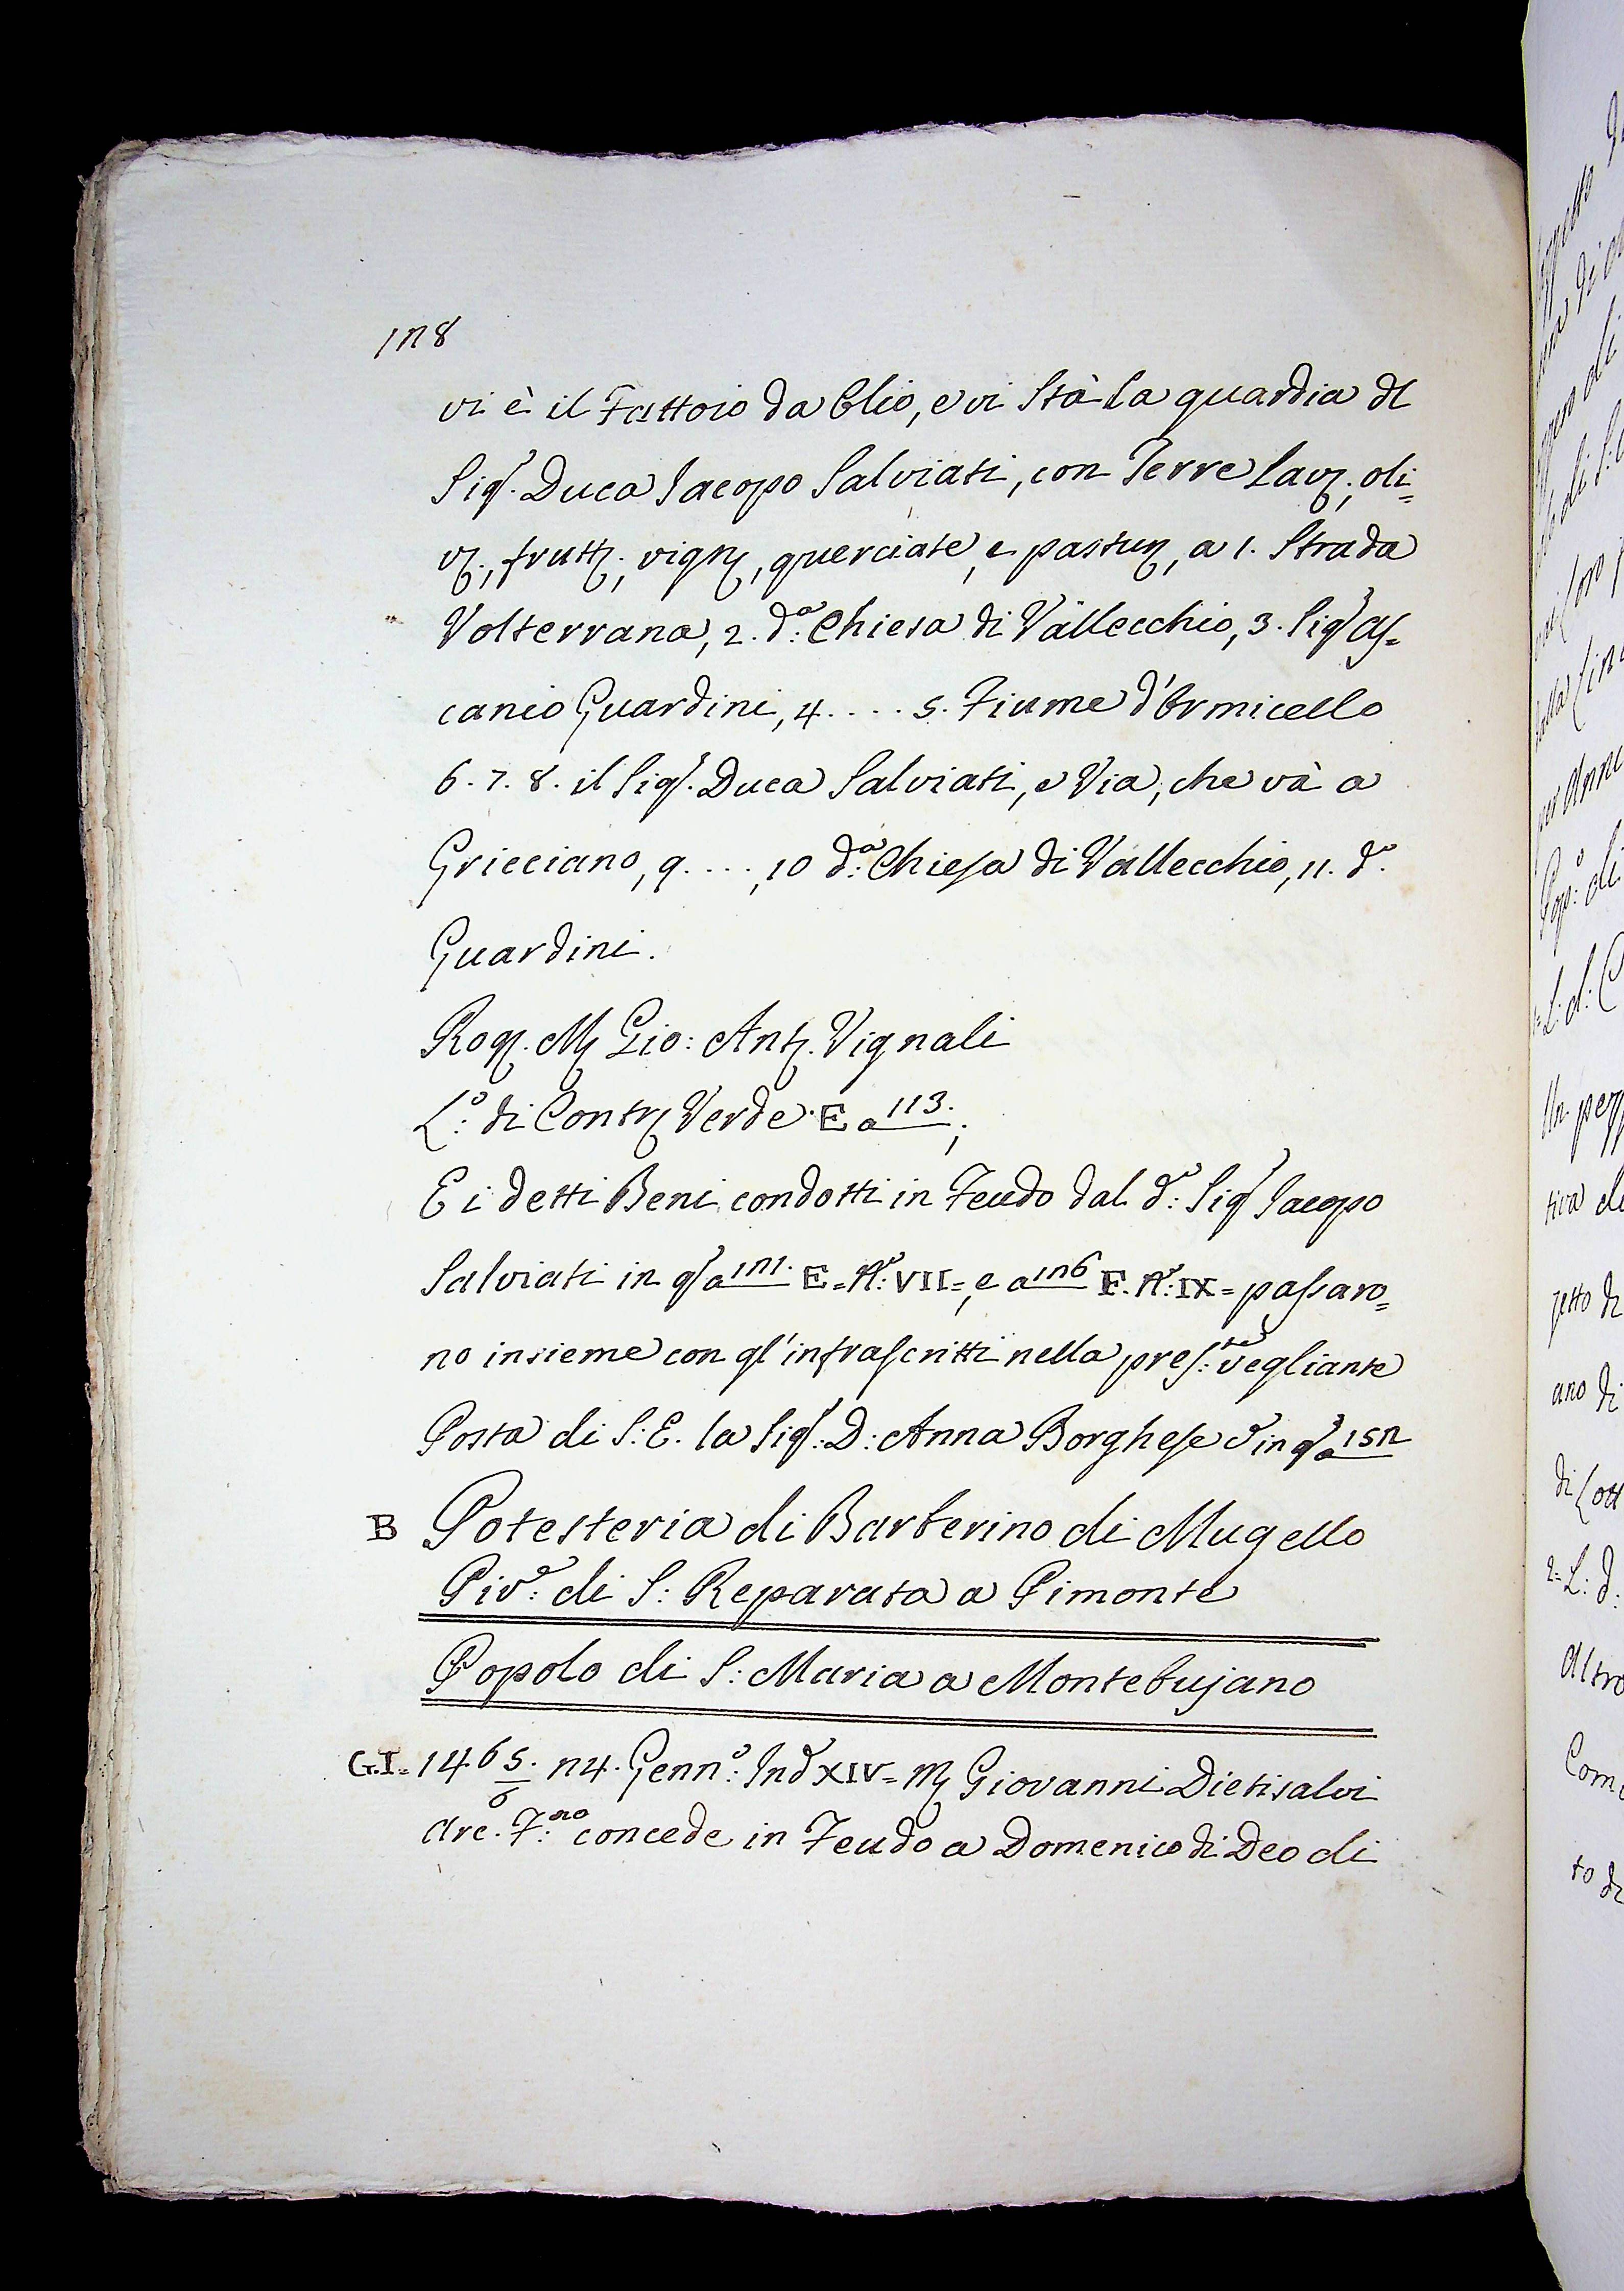 128
vi è il Fattoio da Olio, e vi Stà la quardia dl
Sig.r Duca Jacopo Salviati, con Terre Lav:, oli=
v:, frutt:, vign:, querciate, e pastur:, a 1. Strada
Volterrana, 2. d.a: Chiesa di Vallecchio, 3. Sig.r As=
canio Guardini, 4. . . . 5. Fiume d'Ormicello
6. 7. 8. il Sig.r Duca Salviati, e Via, che và a
Gricciano, 9. . . . , 10 d.a: Chiesa di Vallecchio, 11. d.o
Guardini.
Rog: M: Gio: Ant: Vignali
L.o: di Contr: Verde E a 113.;
E i detti Beni condotti in Feudo dal d.o: Sig.r Jacopo
Salviati in q.o a 121. E=N.o: VII=, e a 126 F. N.o: IX= passaro=
no insieme con gl'infrascritti nella pres:te vegliante
Posta di S: E. la Sig.ra: D: Anna Borghese in q.o a 152
B Potesteria di Barberino di Mugello
Piv.e: di S: Reparata a Pimonte
Popolo di S: Maria a Montebujano
G.I= 1465/6. 24. Genn.o: Ind XIV= M: Giovanni Dietisalvi
Arc. F:no concede in Feudo a Domenico di Deo di